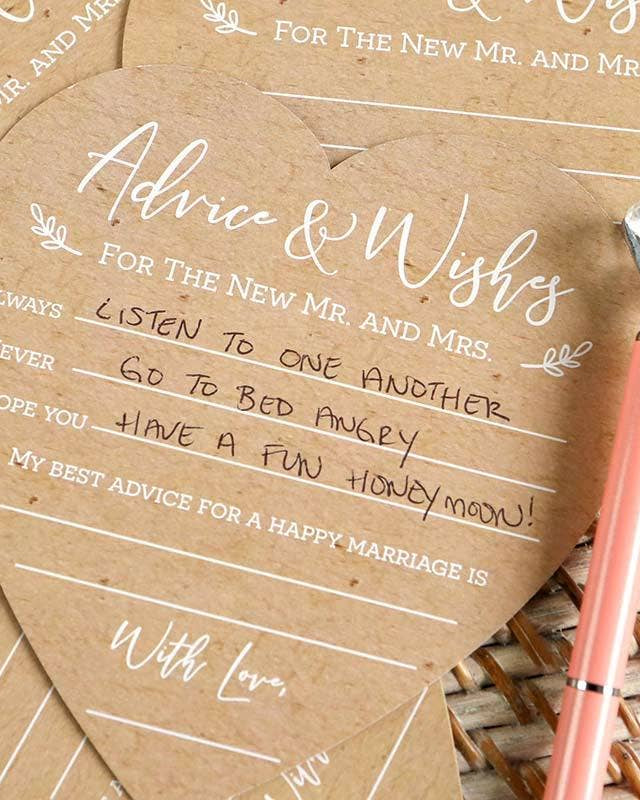 & Wishes
FOR THE NEW MR. AND MR
MR. AND MR
Advice & Wishes
FOR THE NEW MR. AND MRS.
LWAYS LISTEN TO ONE ANOTHER
EVER GO TO BED ANGRY
OPE YOU HAVE A FUN HONEYMOON!
MY BEST ADVICE FOR A HAPPY MARRIAGE IS
With Love,